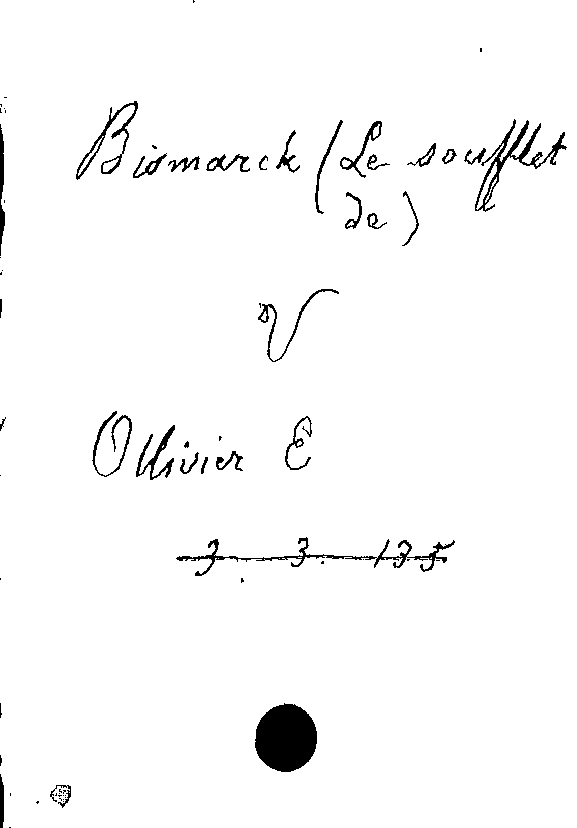 Bismarck (Le soufflet
de)
V
Ollivier E
3. 3. 135